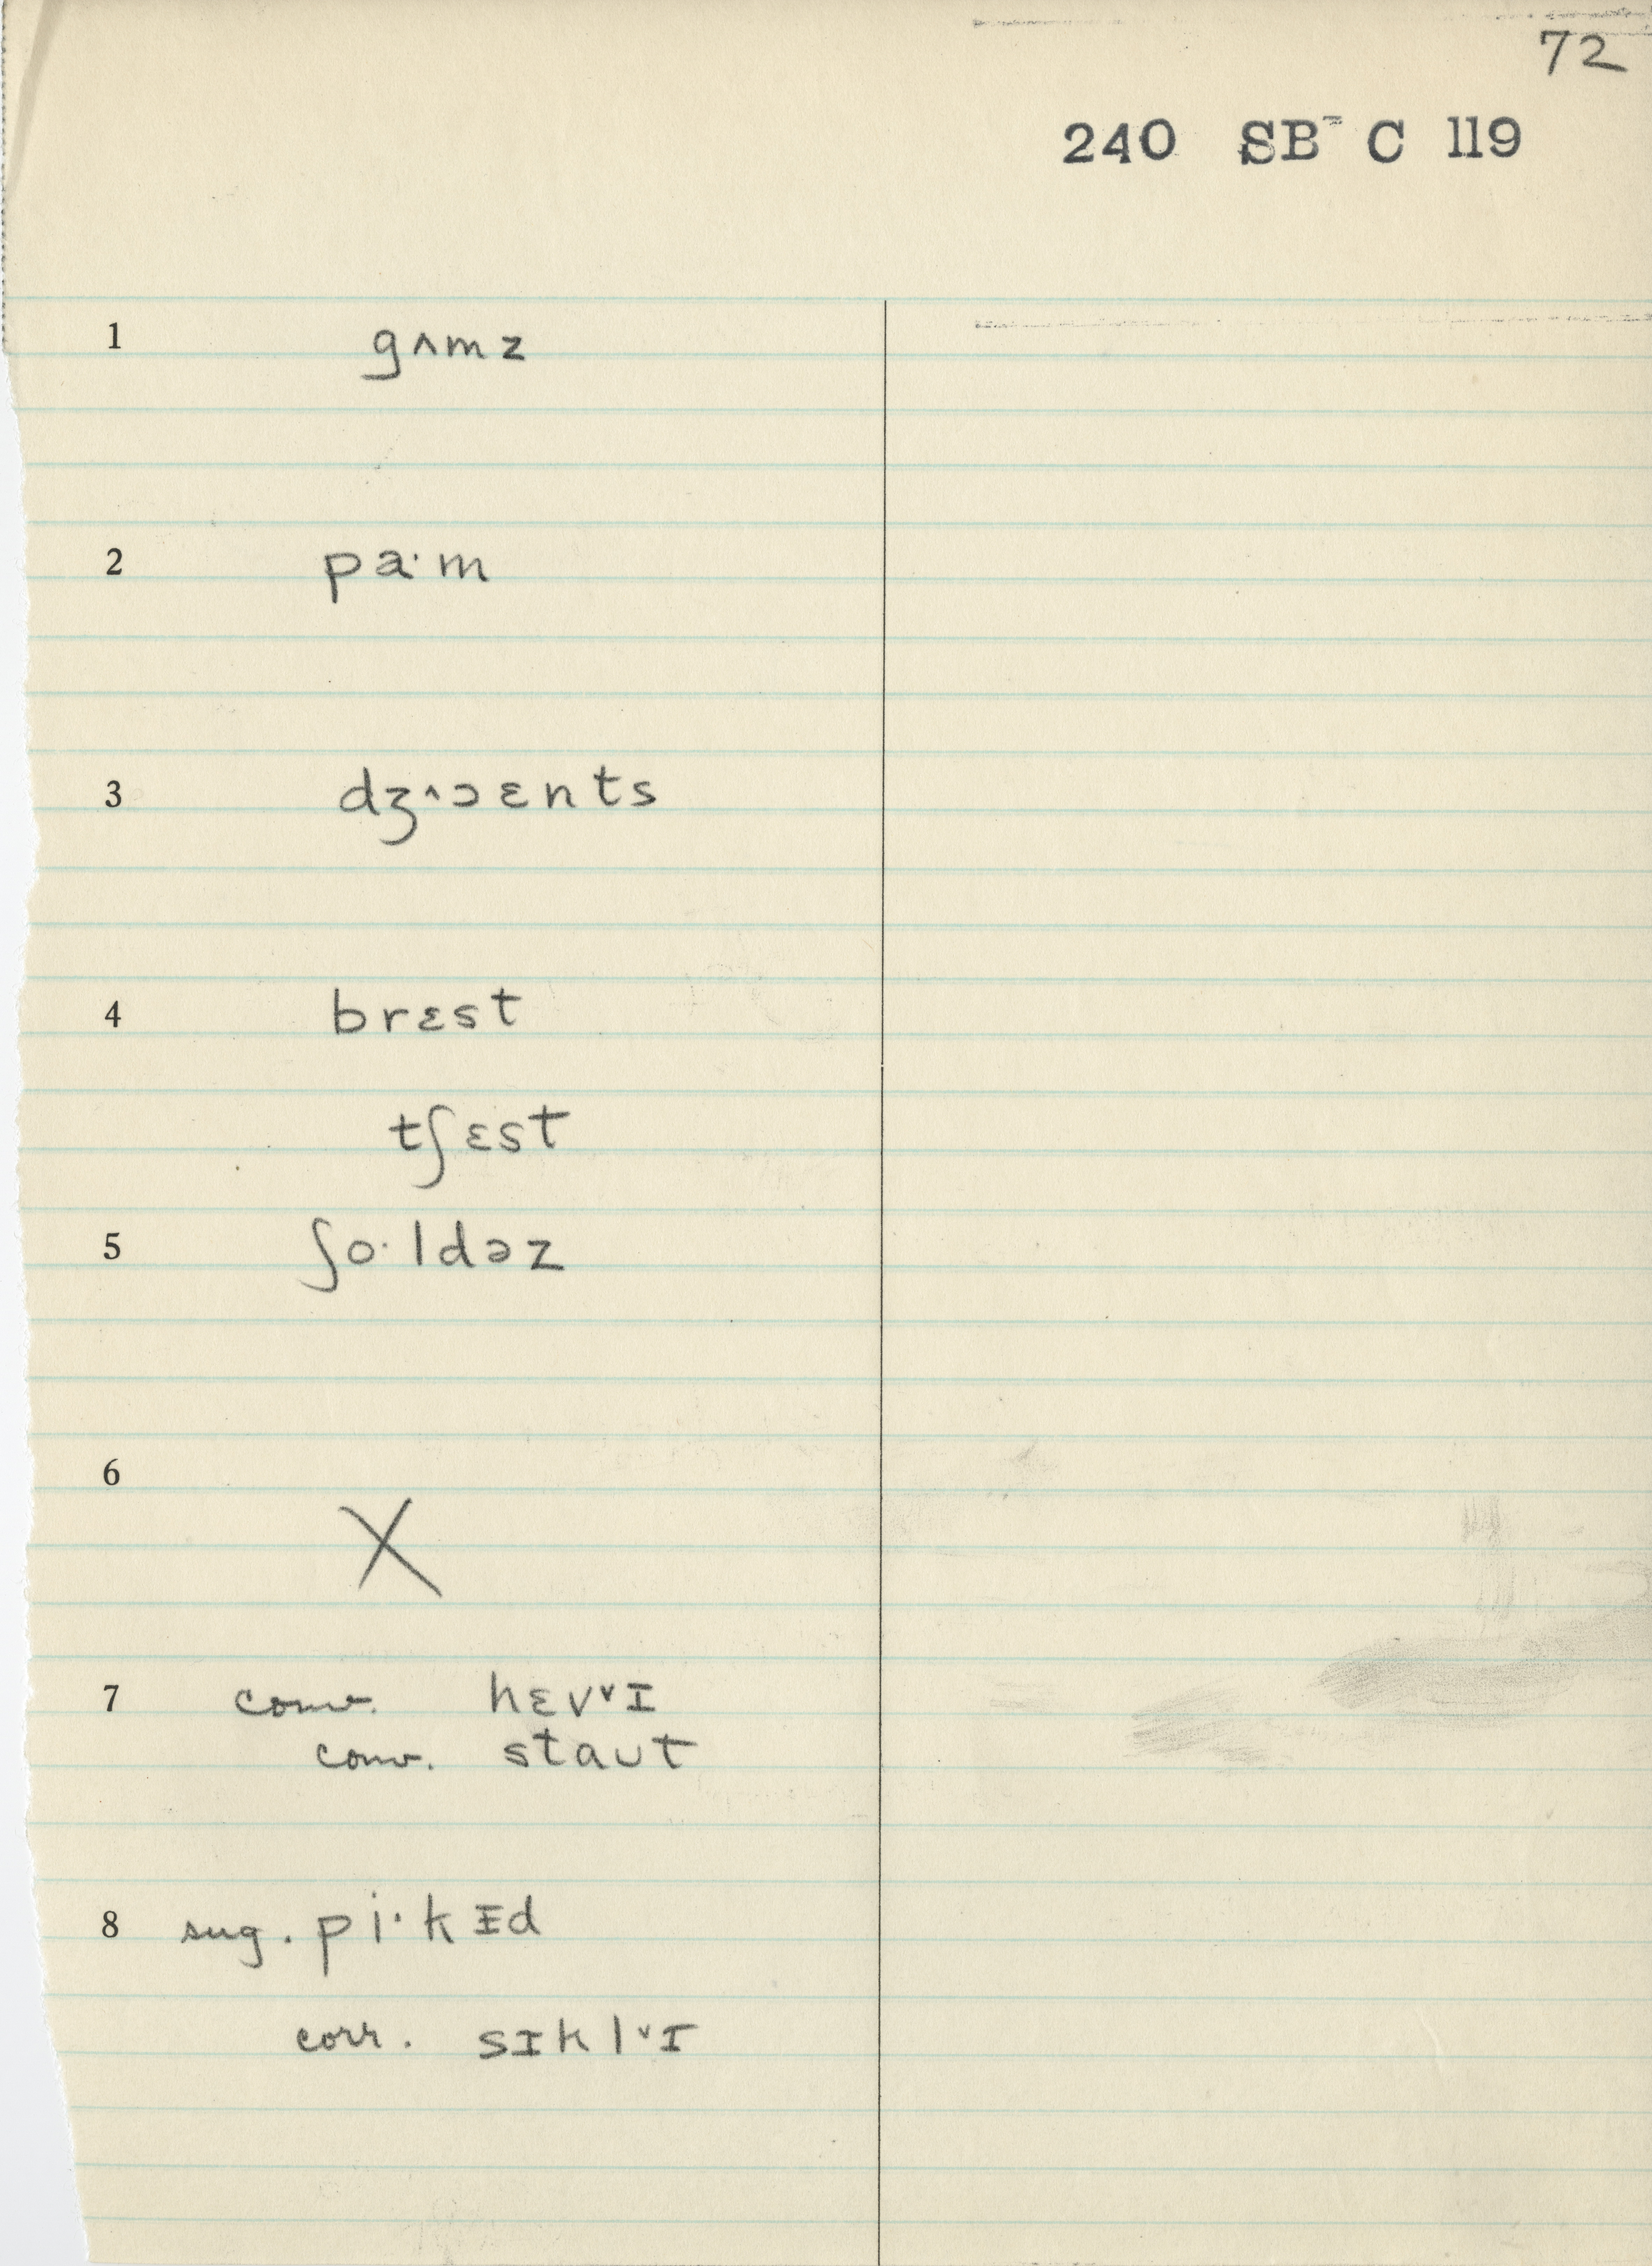 72
240 SB= C 119
1 gʌmz
2 pa·m
3 dʒ^ɔɛnts
4 brɛst
tʃɛst
5 ʃo·ldəz
6 X
7 conv. hɛv˅ɪ
conv. staʊt
8 sug. pi·kɪd
corr. sɪkl˅ɪ